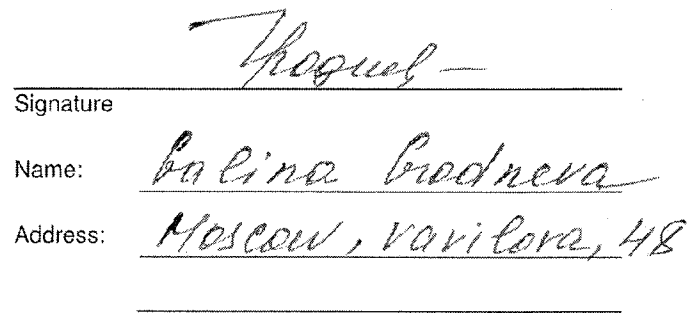 Signature
Name: Galina Grodneva
Address: Moscow, Vavilova, 48